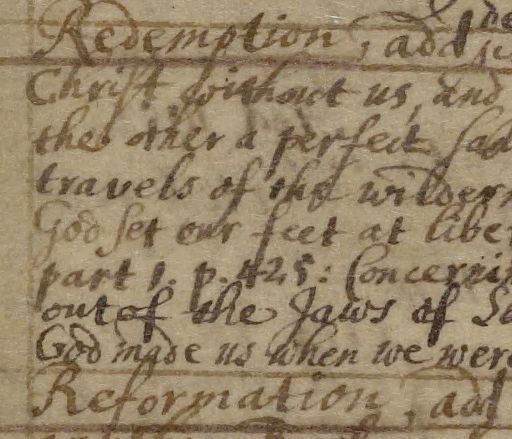 Redemption, add
Christ without us, and
the other a perfect
travels of the
God set our feet at
part 1. p. 425: Concerni
out of the Jaws of
God made us when we were
Reformation, add